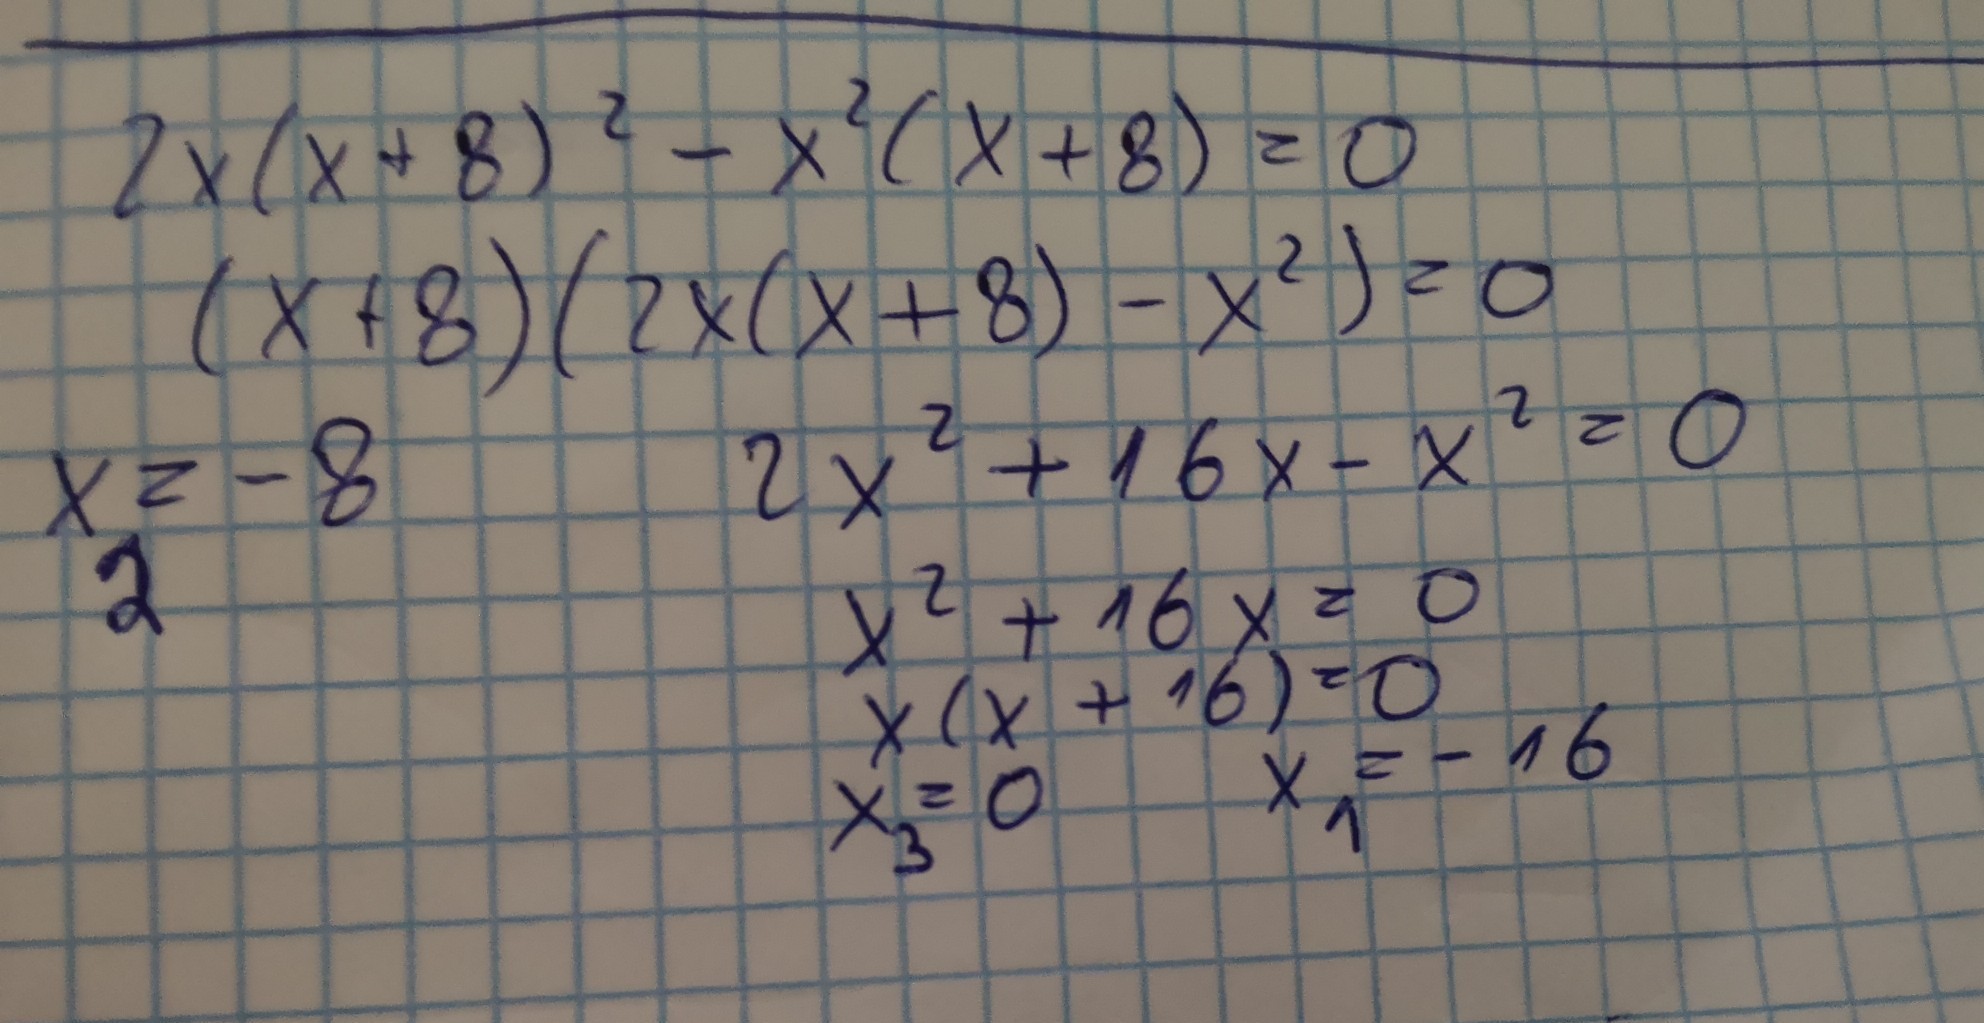 2x(x+8)² - x²(x+8) = 0
(x+8)(2x(x+8) - x²) = 0
x₂ = -8 2x² + 16x - x² = 0
x² + 16x = 0
x(x + 16) = 0
x₃ = 0 x₁ = -16